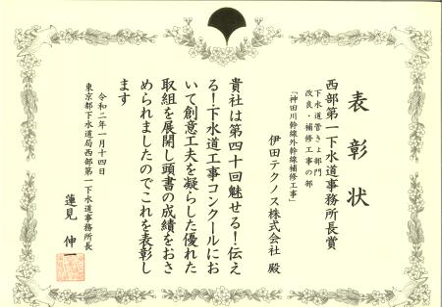 表彰状
西部第一下水道事務所長賞
下水道管きょ部門
改良・補修工事の部
「神田川幹線外幹線補修工事」
伊田テクノス株式会社 殿
貴社は第四十回魅せる!伝え
る!下水道工事コンクールにお
いて創意工夫を凝らした優れた
取組を展開し頭書の成績をおさ
められましたのでこれを表彰し
ます
令和二年一月十四日
東京都下水道局西部第一下水道事務所長
蓮見 伸一